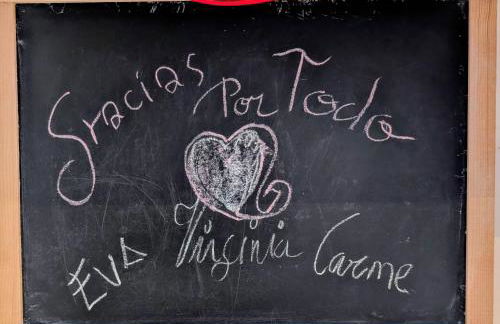 Gracias Por Todo
Eva Virginia Carme